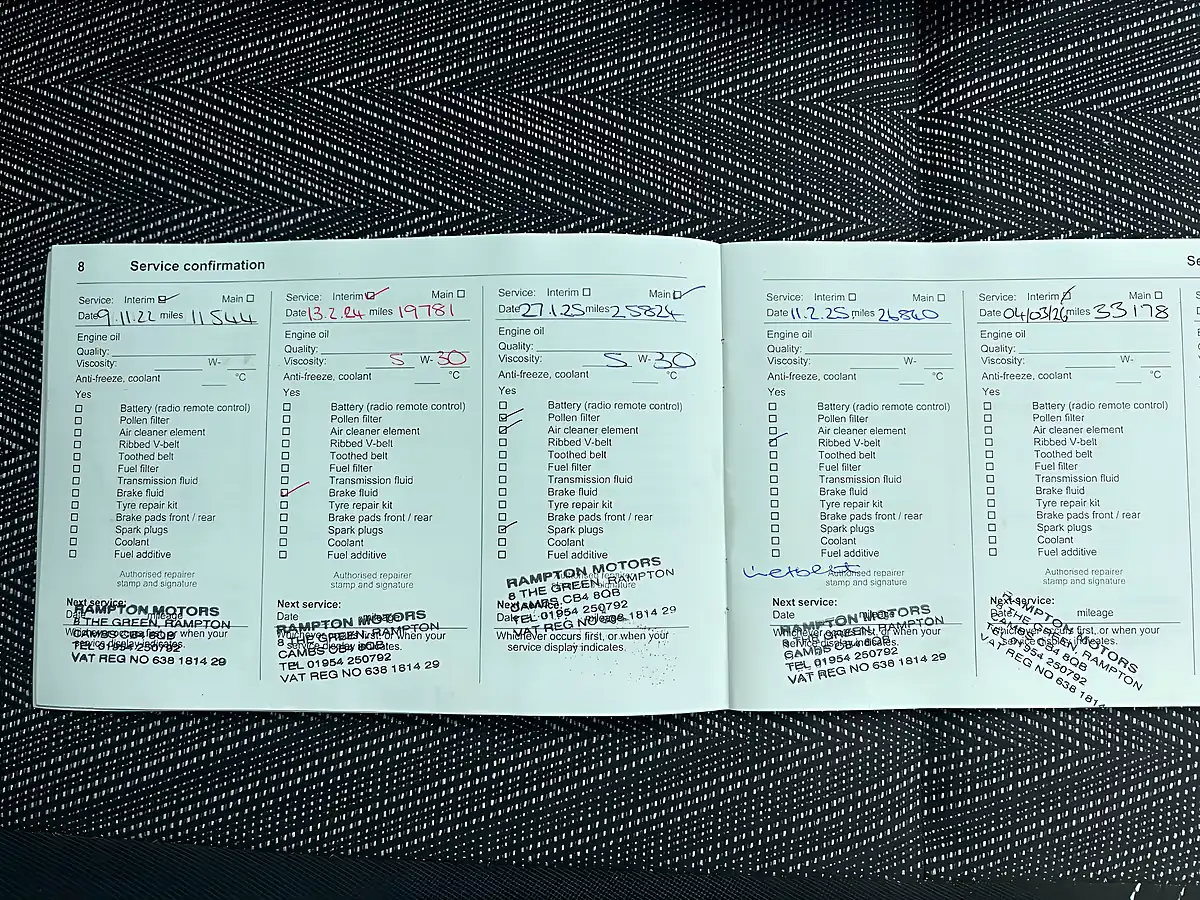 8 Service confirmation
Service: Interim Main
Date 9.11.22 miles 11544
Engine oil
Quality:
Viscosity: W-
Anti-freeze, coolant °C
Yes
Battery (radio remote control)
Pollen filter
Air cleaner element
Ribbed V-belt
Toothed belt
Fuel filter
Transmission fluid
Brake fluid
Tyre repair kit
Brake pads front / rear
Spark plugs
Coolant
Fuel additive
Authorised repairer
stamp and signature
Next service:
Date mileage
Whichever occurs first, or when your
service display indicates.
RAMPTON MOTORS
8 THE GREEN, RAMPTON
CAMBS CB4 8QB
TEL 01954 250792
VAT REG NO 638 1814 29
Service: Interim Main
Date 13.2.24 miles 19781
Engine oil
Quality:
Viscosity: 5 W-30
Anti-freeze, coolant °C
Yes
Battery (radio remote control)
Pollen filter
Air cleaner element
Ribbed V-belt
Toothed belt
Fuel filter
Transmission fluid
Brake fluid
Tyre repair kit
Brake pads front / rear
Spark plugs
Coolant
Fuel additive
Authorised repairer
stamp and signature
Next service:
Date mileage
Whichever occurs first, or when your
service display indicates.
RAMPTON MOTORS
8 THE GREEN, RAMPTON
CAMBS CB4 8QB
TEL 01954 250792
VAT REG NO 638 1814 29
Service: Interim Main
Date 27.1.25 miles 25824
Engine oil
Quality:
Viscosity: 5 W-30
Anti-freeze, coolant °C
Yes
Battery (radio remote control)
Pollen filter
Air cleaner element
Ribbed V-belt
Toothed belt
Fuel filter
Transmission fluid
Brake fluid
Tyre repair kit
Brake pads front / rear
Spark plugs
Coolant
Fuel additive
Authorised repairer
stamp and signature
RAMPTON MOTORS
8 THE GREEN, RAMPTON
CAMBS CB4 8QB
TEL 01954 250792
VAT REG NO 638 1814 29
Next service:
Date mileage
Whichever occurs first, or when your
service display indicates.
Service: Interim Main
Date 11.2.25 miles 26840
Engine oil
Quality:
Viscosity: W-
Anti-freeze, coolant °C
Yes
Battery (radio remote control)
Pollen filter
Air cleaner element
Ribbed V-belt
Toothed belt
Fuel filter
Transmission fluid
Brake fluid
Tyre repair kit
Brake pads front / rear
Spark plugs
Coolant
Fuel additive
Authorised repairer
stamp and signature
Next service:
Date mileage
Whichever occurs first, or when your
service display indicates.
RAMPTON MOTORS
8 THE GREEN, RAMPTON
CAMBS CB4 8QB
TEL 01954 250792
VAT REG NO 638 1814 29
Se
Service: Interim Main
Date 04/03/26 miles 33178
Engine oil
Quality:
Viscosity: W-
Anti-freeze, coolant °C
Yes
Battery (radio remote control)
Pollen filter
Air cleaner element
Ribbed V-belt
Toothed belt
Fuel filter
Transmission fluid
Brake fluid
Tyre repair kit
Brake pads front / rear
Spark plugs
Coolant
Fuel additive
Authorised repairer
stamp and signature
Next service:
Date mileage
Whichever occurs first, or when your
service display indicates.
RAMPTON MOTORS
8 THE GREEN, RAMPTON
CAMBS CB4 8QB
TEL 01954 250792
VAT REG NO 638 1814